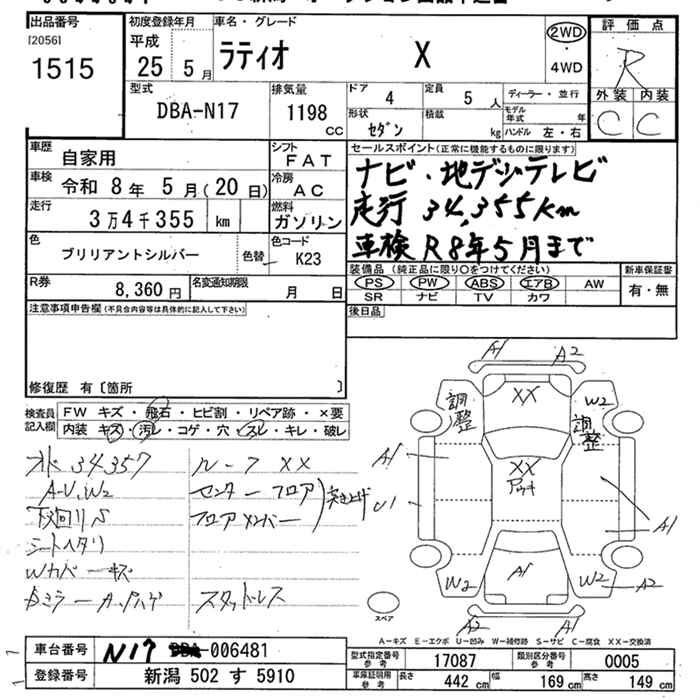 出品番号
[2056]
1515
初度登録年月
平成
25 5月
車名・グレード
ラティオ X
2WD
・
4WD
評価点
R
外装 内装
C C
型式
DBA-N17
排気量
1198
CC
ドア
4
定員
5 人
ディーラー・並行
形状
セダン
積載
kg
モデル年式 年
ハンドル 左・右
車歴
自家用
シフト
FAT
車検
令和 8年 5月(20日)
冷房
AC
走行
3万4千355 km
燃料
ガソリン
色
ブリリアントシルバー
色替
色コード
K23
R券
8,360円
名変通知期限
月 日
セールスポイント(正常に機能するものに限ります)
ナビ・地デジ・テレビ
走行 34,355km
車検 R8年5月まで
装備品(純正品に限り○をつけてください)
PS PW ABS エアB AW
SR ナビ TV カワ
新車保証書
有・無
後日品
注意事項申告欄(不具合内容等は具体的に記入して下さい)
修復歴 有〔箇所 〕
検査員記入欄
FW キズ・飛石・ヒビ割・リペア跡・×要
内装 キズ・汚レ・コゲ・穴・スレ・キレ・破レ
34357
A-U、W2
下回りS
シートヘタリ
Wカバーキズ
ルーフ XX
センターフロア
フロアメンバー
突き上げ
スタッドレス
A1 A2
XX
調整
W2
調整
A1
XX
U1
A1
W2
A1
W2
A2
A2 A1
スペア
A-キズ E-エクボ U-凹み W-補修跡 S-サビ C-腐食 XX-交換済
車台番号
N17 DBA-006481
登録番号
新潟 502 す 5910
型式指定番号
参考
17087
類別区分番号
参考
0005
車庫証明用
参考
長さ 442 cm
幅 169 cm
高さ 149 cm